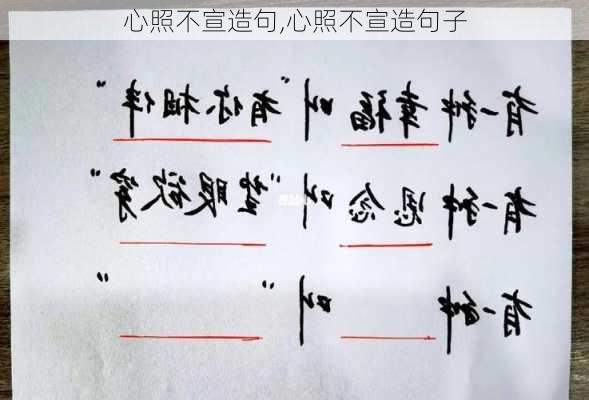 心照不宣造句,心照不宣造句子
有一种幸福叫"有你相伴"
有一种思念叫"望眼欲穿"
有一种 叫" "